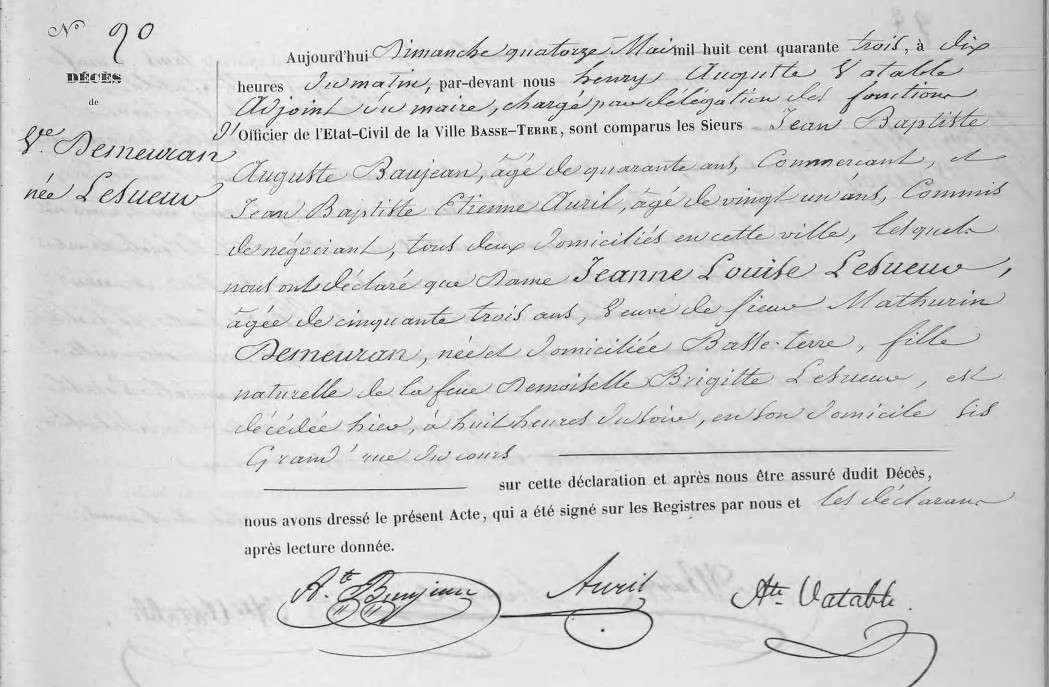 N° 90
DÉCÈS
de
Ve. Demeuran
née Lesueur
Aujourd'hui Dimanche quatorze Mai mil huit cent quarante trois, à dix
heures du matin, par-devant nous henry Auguste Vatable
Adjoint du maire, chargé par délégation des fonctions
d'Officier de l'Etat-Civil de la Ville BASSE-TERRE, sont comparus les Sieurs Jean Baptiste
Auguste Baujean, âgé de quarante ans, Commerçant, et
Jean Baptiste Etienne Auril, âgé de vingt un ans, Commis
de négociant, tous deux domiciliés en cette ville, lesquels
nous ont déclaré que Dame Jeanne Louise Lesueur,
âgée de cinquante trois ans, Veuve de sieur Mathurin
Demeuran, née et domiciliée Basse-terre, fille
naturelle de la feue Demoiselle Brigitte Lesueur, est
décédée hier, à huit heures du soir, en son domicile sis
Grand' rue du cours
sur cette déclaration et après nous être assuré dudit Décès,
nous avons dressé le présent Acte, qui a été signé sur les Registres par nous et les déclarans
après lecture donnée.
Ate Baujean Auril Ate Vatable.